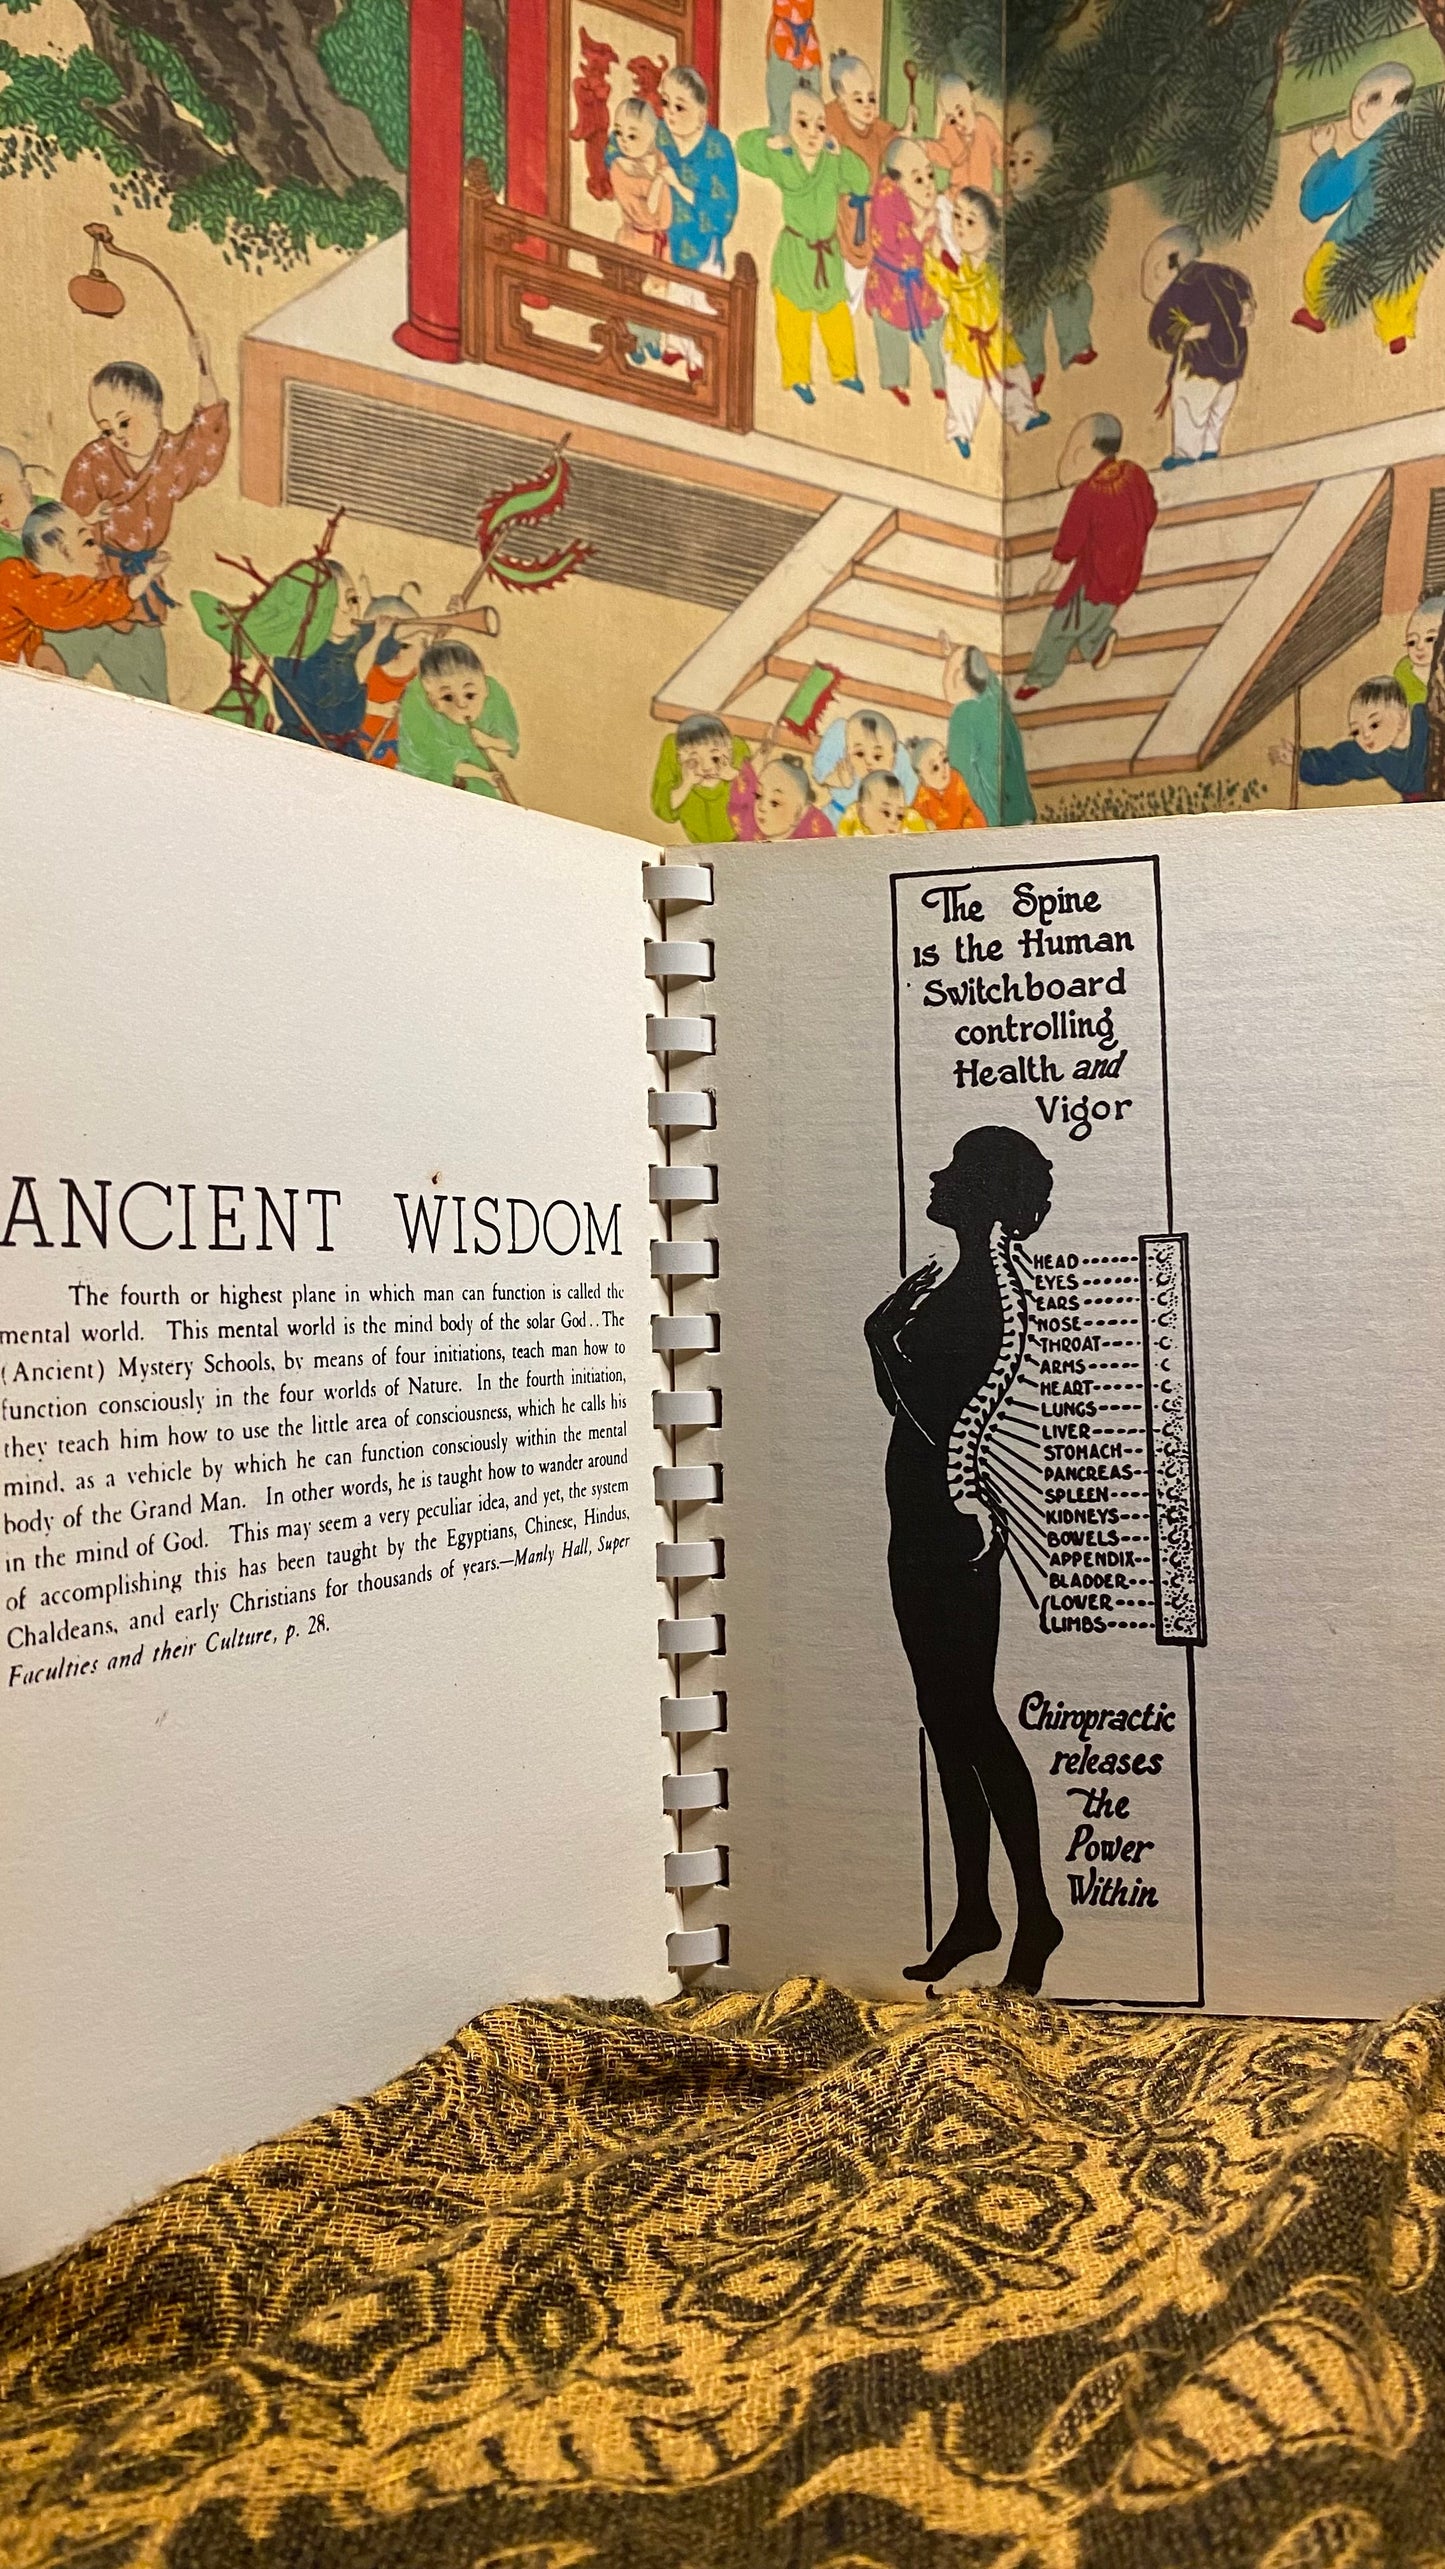 ANCIENT WISDOM
The fourth or highest plane in which man can function is called the
mental world. This mental world is the mind body of the solar God.. The
(Ancient) Mystery Schools, by means of four initiations, teach man how to
function consciously in the four worlds of Nature. In the fourth initiation,
they teach him how to use the little area of consciousness, which he calls his
mind, as a vehicle by which he can function consciously within the mental
body of the Grand Man. In other words, he is taught how to wander around
in the mind of God. This may seem a very peculiar idea, and yet, the system
of accomplishing this has been taught by the Egyptians, Chinese, Hindus,
Chaldeans, and early Christians for thousands of years.—Manly Hall, Super
Faculties and their Culture, p. 28.
The Spine
is the Human
Switchboard
controlling
Health and
Vigor
HEAD
EYES
EARS
NOSE
THROAT
ARMS
HEART
LUNGS
LIVER
STOMACH
PANCREAS
SPLEEN
KIDNEYS
BOWELS
APPENDIX
BLADDER
LOWER
LIMBS
Chiropractic
releases
the
Power
Within